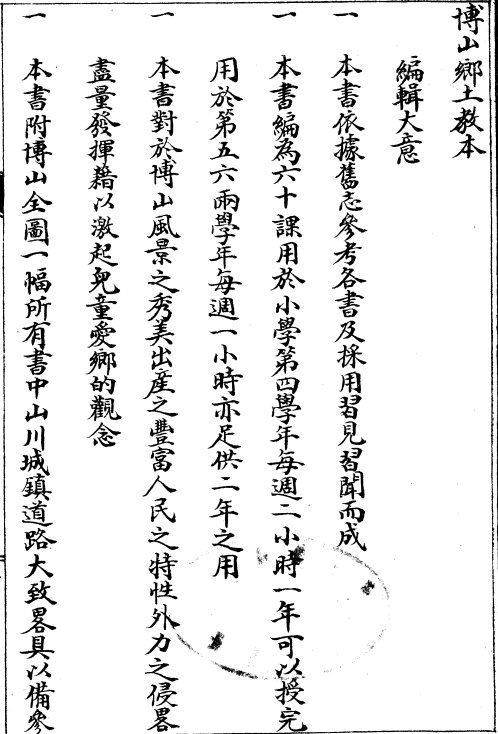 博山鄉土教本
編輯大意
一　本書依據舊志參考各書及採用習見習聞而成
一　本書編為六十課用於小學第四學年每週二小時一年可以授完
用於第五六兩學年每週一小時亦足供二年之用
一　本書對於博山風景之秀美出產之豐富人民之特性外力之侵畧
盡量發揮藉以激起兒童愛鄉的觀念
一　本書附博山全圖一幅所有書中山川城鎮道路大致畧具以備參